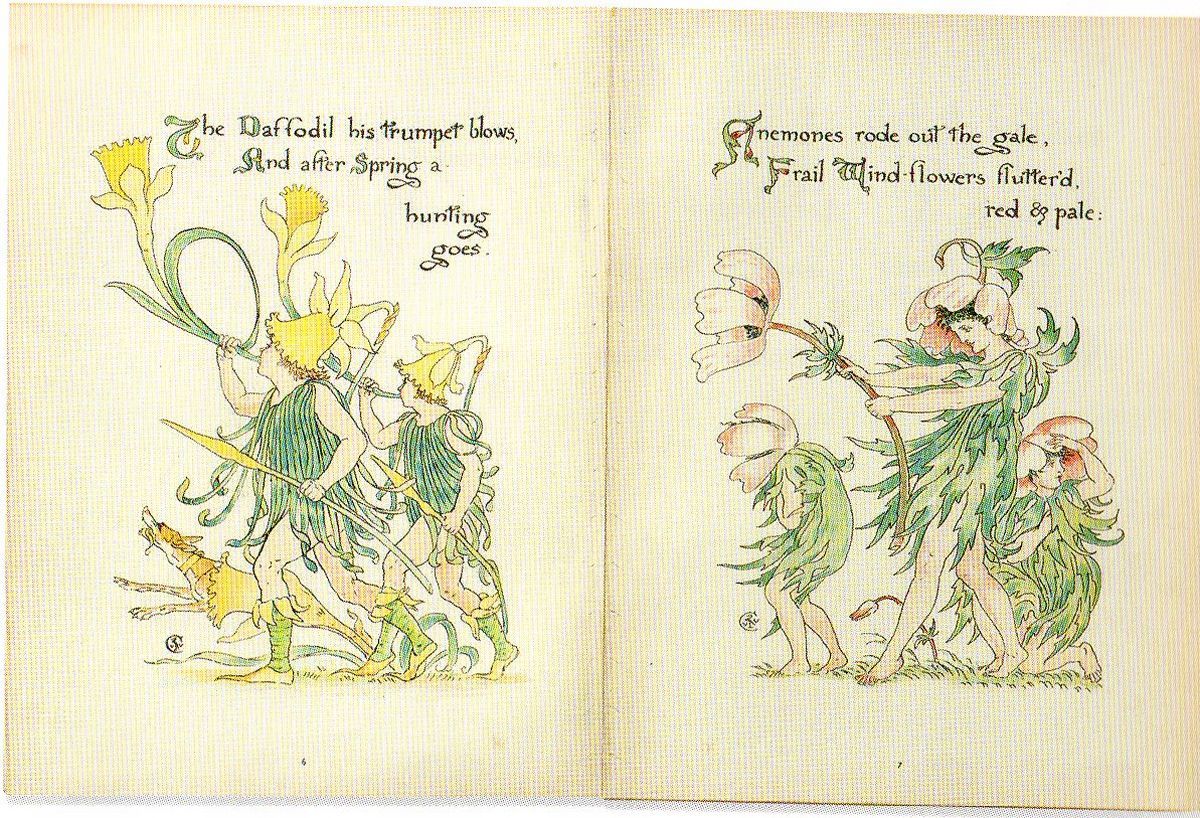 The Daffodil his trumpet blows,
And after Spring a-
hunting
goes.
6
Anemones rode out the gale,
Frail Wind-flowers flutter'd,
red & pale:
7